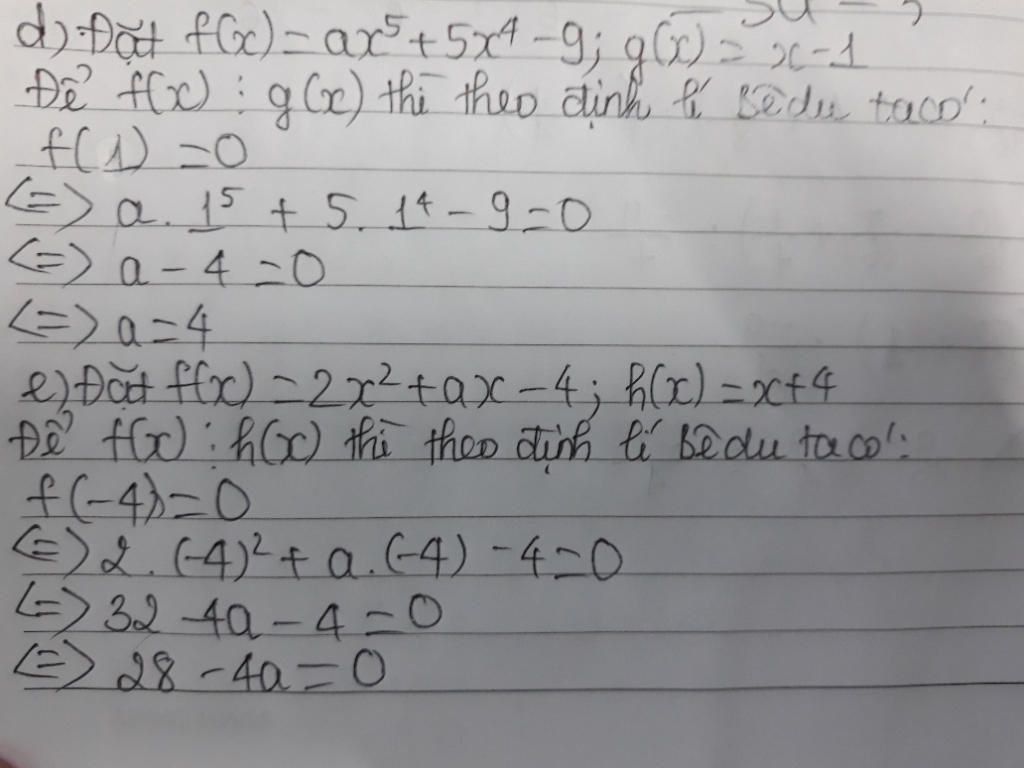 d) Đặt f(x) = ax⁵ + 5x⁴ - 9; g(x) = x - 1
Để f(x) ⋮ g(x) thì theo định lí Bêdu ta có:
f(1) = 0
<=> a. 1⁵ + 5. 1⁴ - 9 = 0
<=> a - 4 = 0
<=> a = 4
e) Đặt f(x) = 2x² + ax - 4; h(x) = x + 4
Để f(x) ⋮ h(x) thì theo định lí Bêdu ta có:
f(-4) = 0
<=> 2. (-4)² + a. (-4) - 4 = 0
<=> 32 - 4a - 4 = 0
<=> 28 - 4a = 0